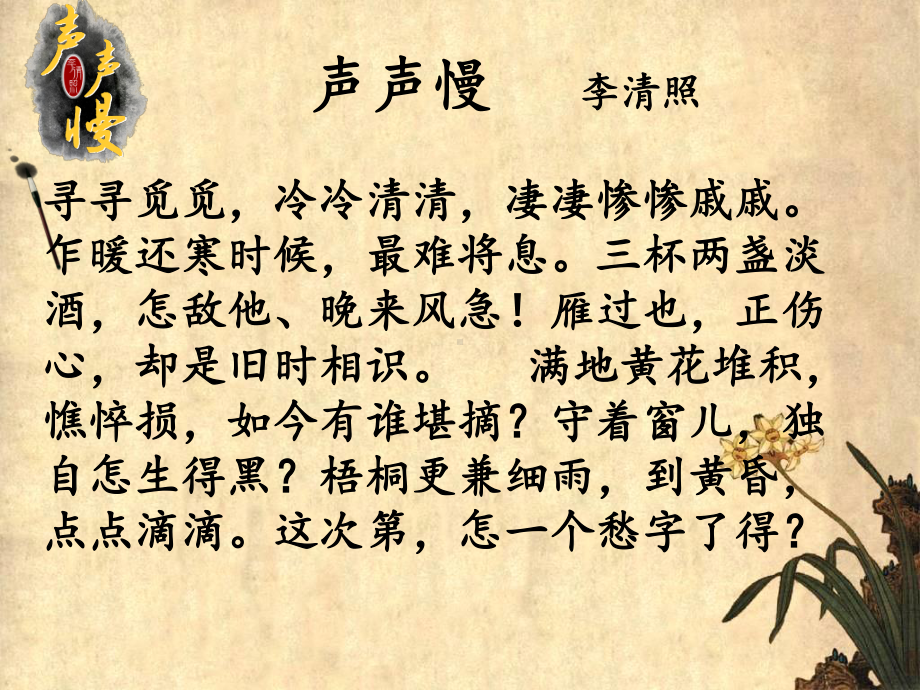 声声慢
声声慢 李清照
寻寻觅觅，冷冷清清，凄凄惨惨戚戚。
乍暖还寒时候，最难将息。三杯两盏淡
酒，怎敌他、晚来风急！雁过也，正伤
心，却是旧时相识。 满地黄花堆积，
憔悴损，如今有谁堪摘？守着窗儿，独
自怎生得黑？梧桐更兼细雨，到黄昏，
点点滴滴。这次第，怎一个愁字了得？